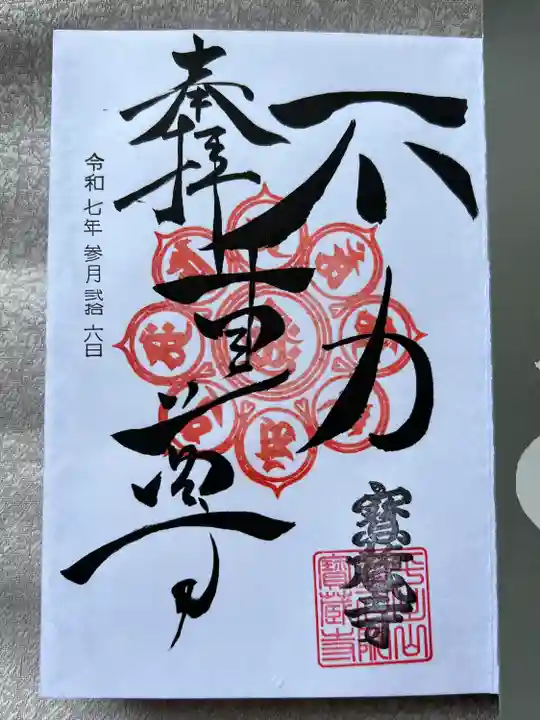 奉拝
不動尊
令和七年 参月 弐拾六日
寳蔵寺
寳蔵寺